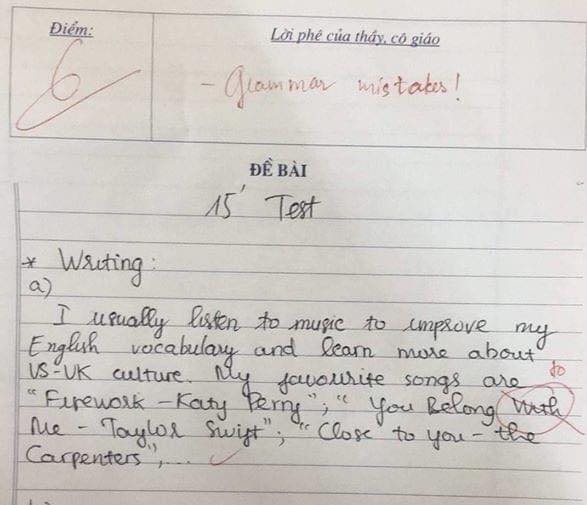 Điểm:
Lời phê của thầy, cô giáo
6
- Grammar mistakes!
ĐỀ BÀI
15' Test
* Writing:
a)
I usually listen to music to improve my
English vocabulary and learn more about
US-UK culture. My favourite songs are
to
"Firework - Katy Perry"; "You Belong With
Me - Taylor Swift"; "Close to you - the
Carpenters",...